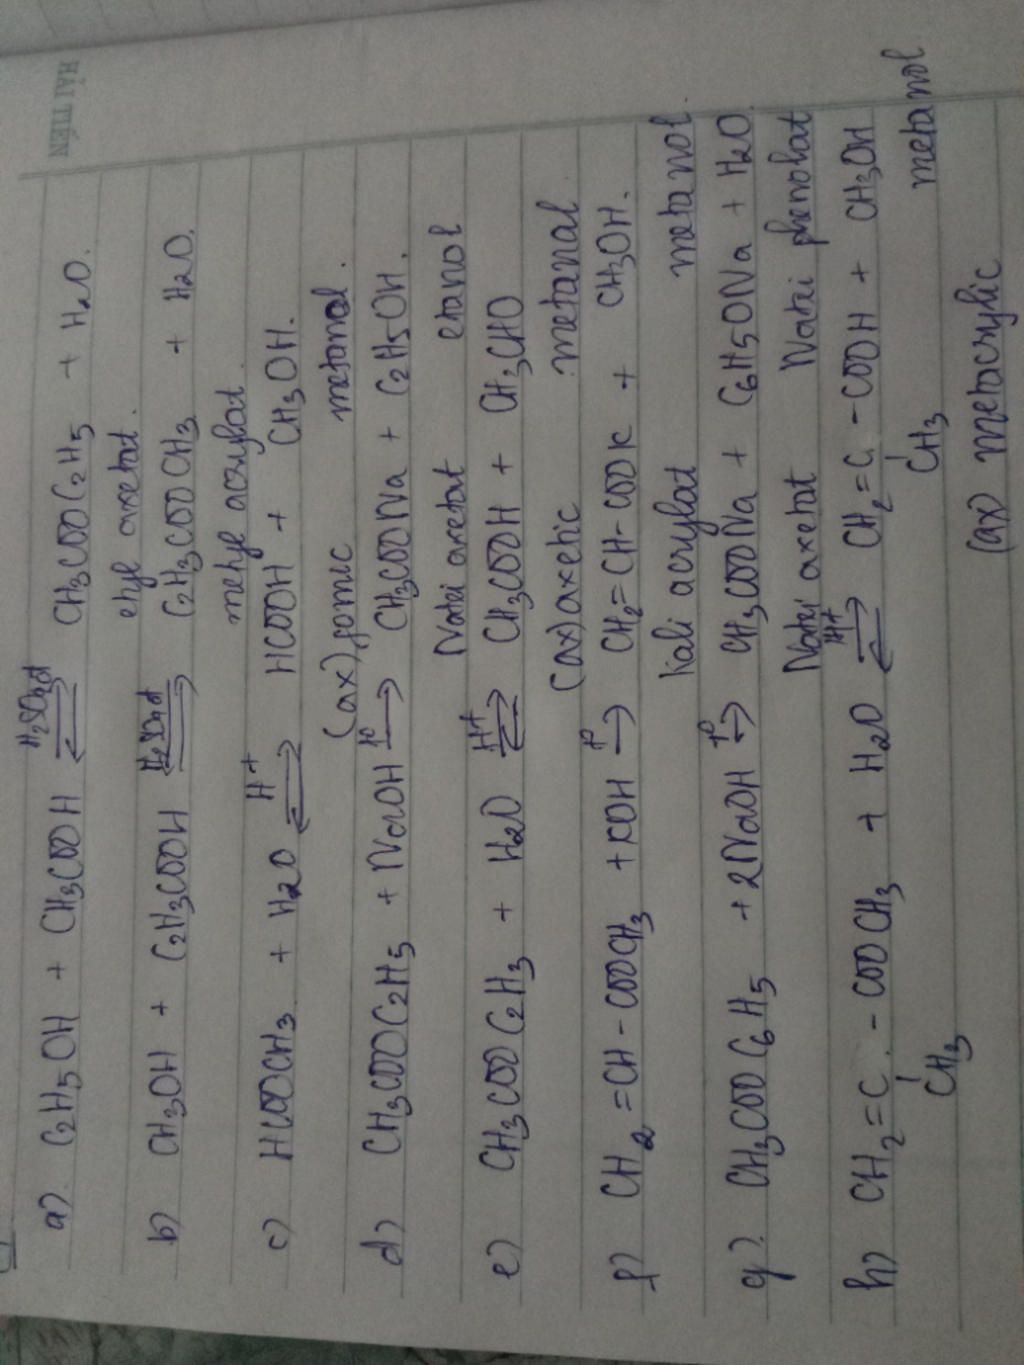 HẢI TIẾN
a) C2H5OH + CH3COOH ⇌ H2SO4đ CH3COOC2H5 + H2O.
etyl axetat.
b) CH3OH + C2H3COOH ⇌ H2SO4đ C2H3COOCH3 + H2O.
metyl acrylat.
c) HCOOCH3 + H2O ⇌ H+ HCOOH + CH3OH.
(ax) fomic metanol.
d) CH3COOC2H5 + NaOH → t° CH3COONa + C2H5OH.
Natri axetat etanol
e) CH3COOC2H3 + H2O ⇌ H+ CH3COOH + CH3CHO
(ax) axetic metanal
f) CH2=CH-COOCH3 + KOH → t° CH2=CH-COOK + CH3OH.
kali acrylat metanol.
g) CH3COOC6H5 + 2NaOH → t° CH3COONa + C6H5ONa + H2O.
Natri axetat Natri phenolat
h) CH2=C-COOCH3 + H2O ⇌ H+ CH2=C-COOH + CH3OH
CH3 CH3 metanol
(ax) metacrylic